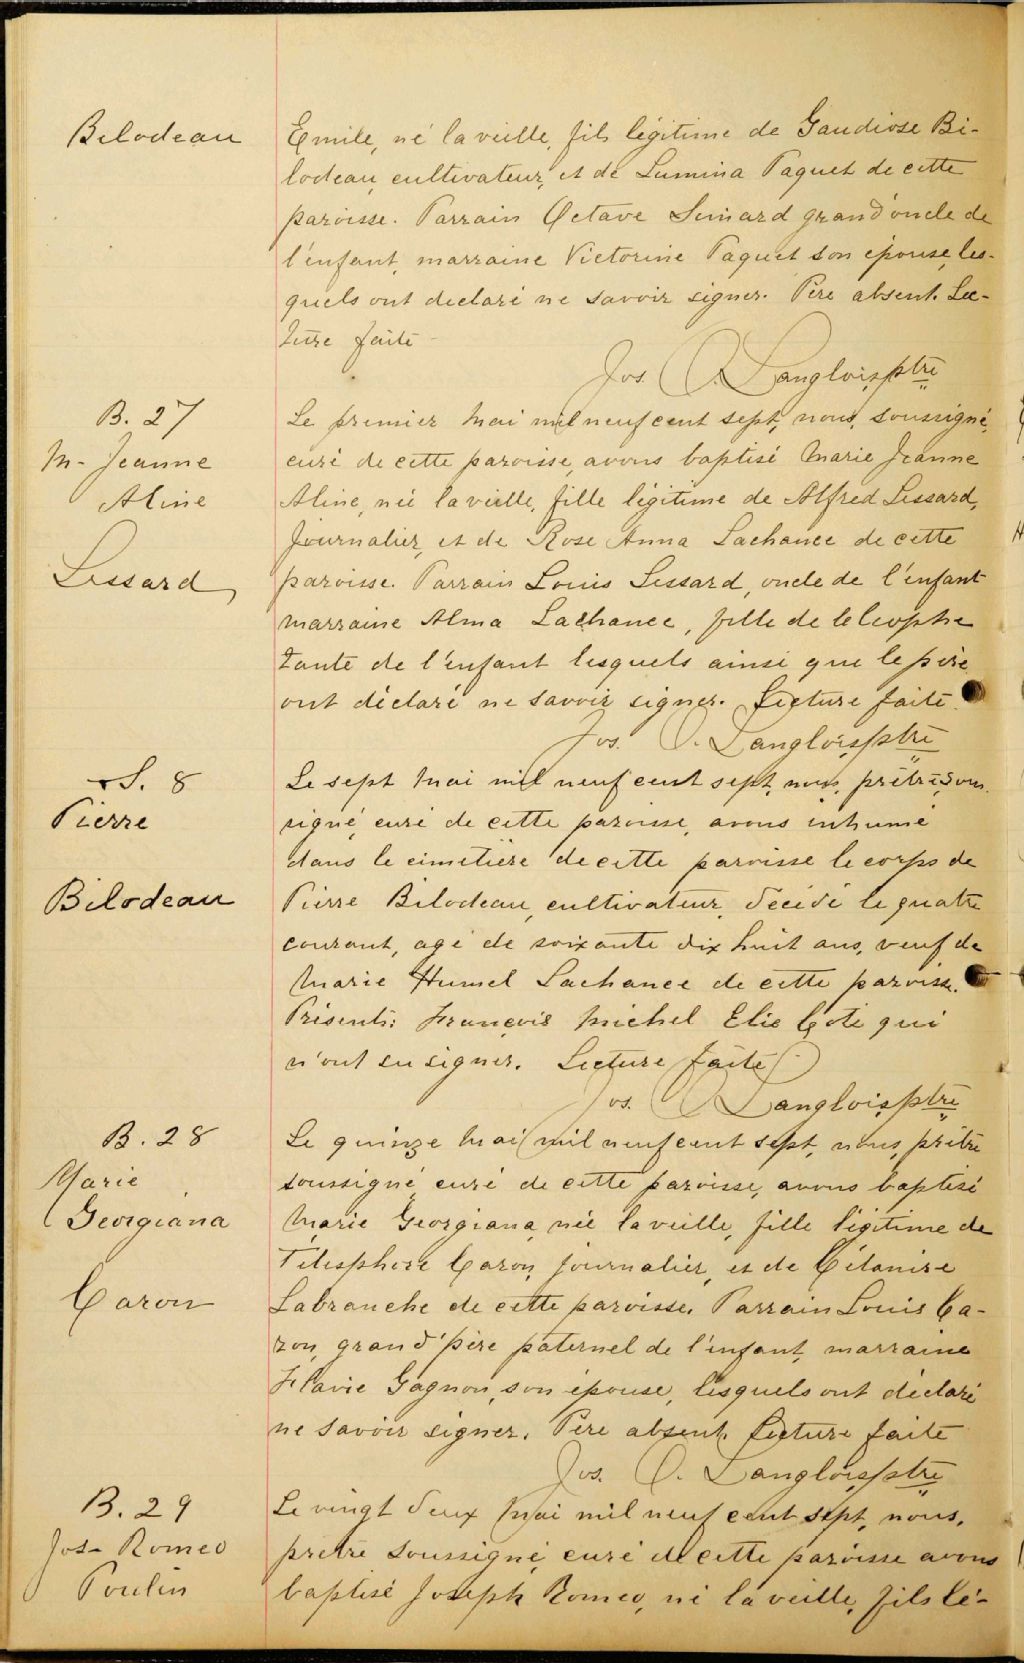 Bilodeau
Emile, né la veille, fils légitime de Gaudiose Bi-
lodeau, cultivateur, et de Lumina Paquet de cette
paroisse. Parrain Octave Simard grand'oncle de
l'enfant, marraine Victorine Paquet son épouse, les-
quels ont declaré ne savoir signer. Père absent. Lec-
ture faite
Jos. O. Langlois, ptre
B. 27
M- Jeanne
Aline
Lessard
Le premier Mai mil neuf cent sept, nous, soussigné,
curé de cette paroisse, avons baptisé Marie Jeanne
Aline, née la veille, fille légitime de Alfred Lessard,
Journalier, et de Rose Anna Lachance de cette
paroisse. Parrain Louis Lessard, oncle de l'enfant
marraine Alma Lachance, fille de
tante de l'enfant lesquels ainsi que le père
ont déclaré ne savoir signer. Lecture faite.
Jos. O. Langlois, ptre
S. 8
Pierre
Bilodeau
Le sept Mai mil neuf cent sept, nous, prêtre, sous
signé, curé de cette paroisse, avons inhumé
dans le cimetière de cette paroisse le corps de
Pierre Bilodeau, cultivateur, décédé le quatre
courant, agé de soixante dix huit ans, veuf de
Marie Humel Lachance de cette paroisse.
Présents: François Michel Elie Coté qui
n'ont su signer. Lecture faite
Jos. O. Langlois, ptre
B. 28
Marie
Georgiana
Caron
Le quinze Mai mil neuf cent sept, nous, prêtre
soussigné, curé de cette paroisse, avons baptisé
Marie Georgiana, née la veille, fille légitime de
Télesphore Caron, journalier, et de Célanire
Labranche de cette paroisse. Parrain Louis Ca-
ron, grand'père paternel de l'enfant, marraine
Flavie Gagnon, son épouse, lesquels ont déclaré
ne savoir signer. Père absent. Lecture faite
Jos. O. Langlois, ptre
B. 29
Jos- Romeo
Poulin
Le vingt deux Mai mil neuf cent sept, nous,
prêtre soussigné, curé de cette paroisse avons
baptisé Joseph Romeo, né la veille, fils lé-